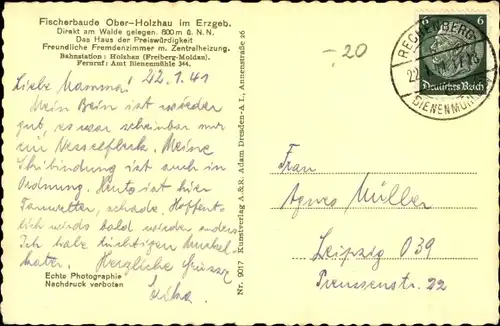 Fischerbaude Ober-Holzhau im Erzgeb.
Direkt am Walde gelegen. 600 m ü. N.N.
Das Haus der Preiswürdigkeit
Freundliche Fremdenzimmer m. Zentralheizung.
Bahnstation: Holzhau (Freiberg-Moldau).
Fernruf: Amt Bienenmühle 344.
22.1.41
Liebe Mamma!
Mein Bein ist wieder
gut, es war scheinbar nur
ein Nesselfleck. Meine
Skibindung ist auch in
Ordnung. Heute ist hier
Tauwetter, schade. Hoffent-
lich wirds bald wieder anders.
Ich habe tüchtigen Muskel-
kater. Herzliche Grüsse
Echte Photographie
Nachdruck verboten
Nr. 9017 Kunstverlag A. & R. Adam Dresden-A 1, Annenstraße 26
-20
RECHENBERG-
BIENENMÜHLE
22
6
6
Deutsches Reich
Frau
Agnes Müller
Leipzig O39
Preussenstr. 22